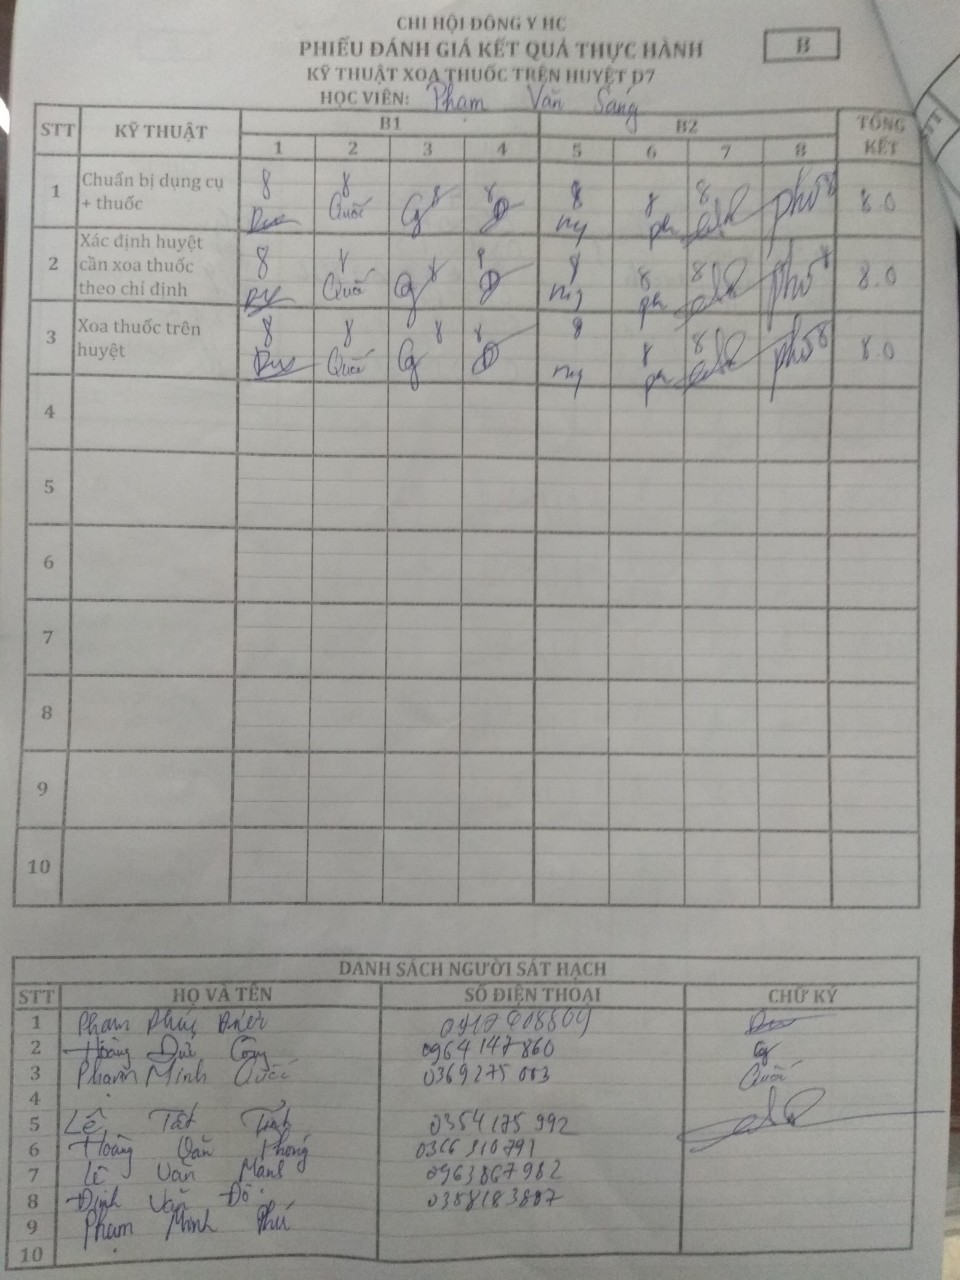 CHI HỘI ĐÔNG Y HC
PHIẾU ĐÁNH GIÁ KẾT QUẢ THỰC HÀNH
B
KỸ THUẬT XOA THUỐC TRÊN HUYỆT D7
HỌC VIÊN: Phạm Văn Sáng
STT KỸ THUẬT B1 B2 TỔNG KẾT
1 2 3 4 5 6 7 8
1 Chuẩn bị dụng cụ + thuốc 8 8 8 8 8 8 8 8 8.0
Quốc phú
2 Xác định huyệt cần xoa thuốc theo chỉ định 8 8 8 8 8 8 8 8 8.0
Quốc phú
3 Xoa thuốc trên huyệt 8 8 8 8 8 8 8 8 8.0
Quốc phú
4
5
6
7
8
9
10
DANH SÁCH NGƯỜI SÁT HẠCH
STT HỌ VÀ TÊN SỐ ĐIỆN THOẠI CHỮ KÝ
1 Phạm Phúc
2 Hoàng Đức Công 0964147860
3 Phạm Minh Quốc 0369275003 Quốc
4
5 Lê Tất 0354175992
6 Hoàng Văn Phong 0366310791
7 Lê Văn Mạnh 0963867982
8 Đinh Văn Độ
9 Phạm Minh Phú
10